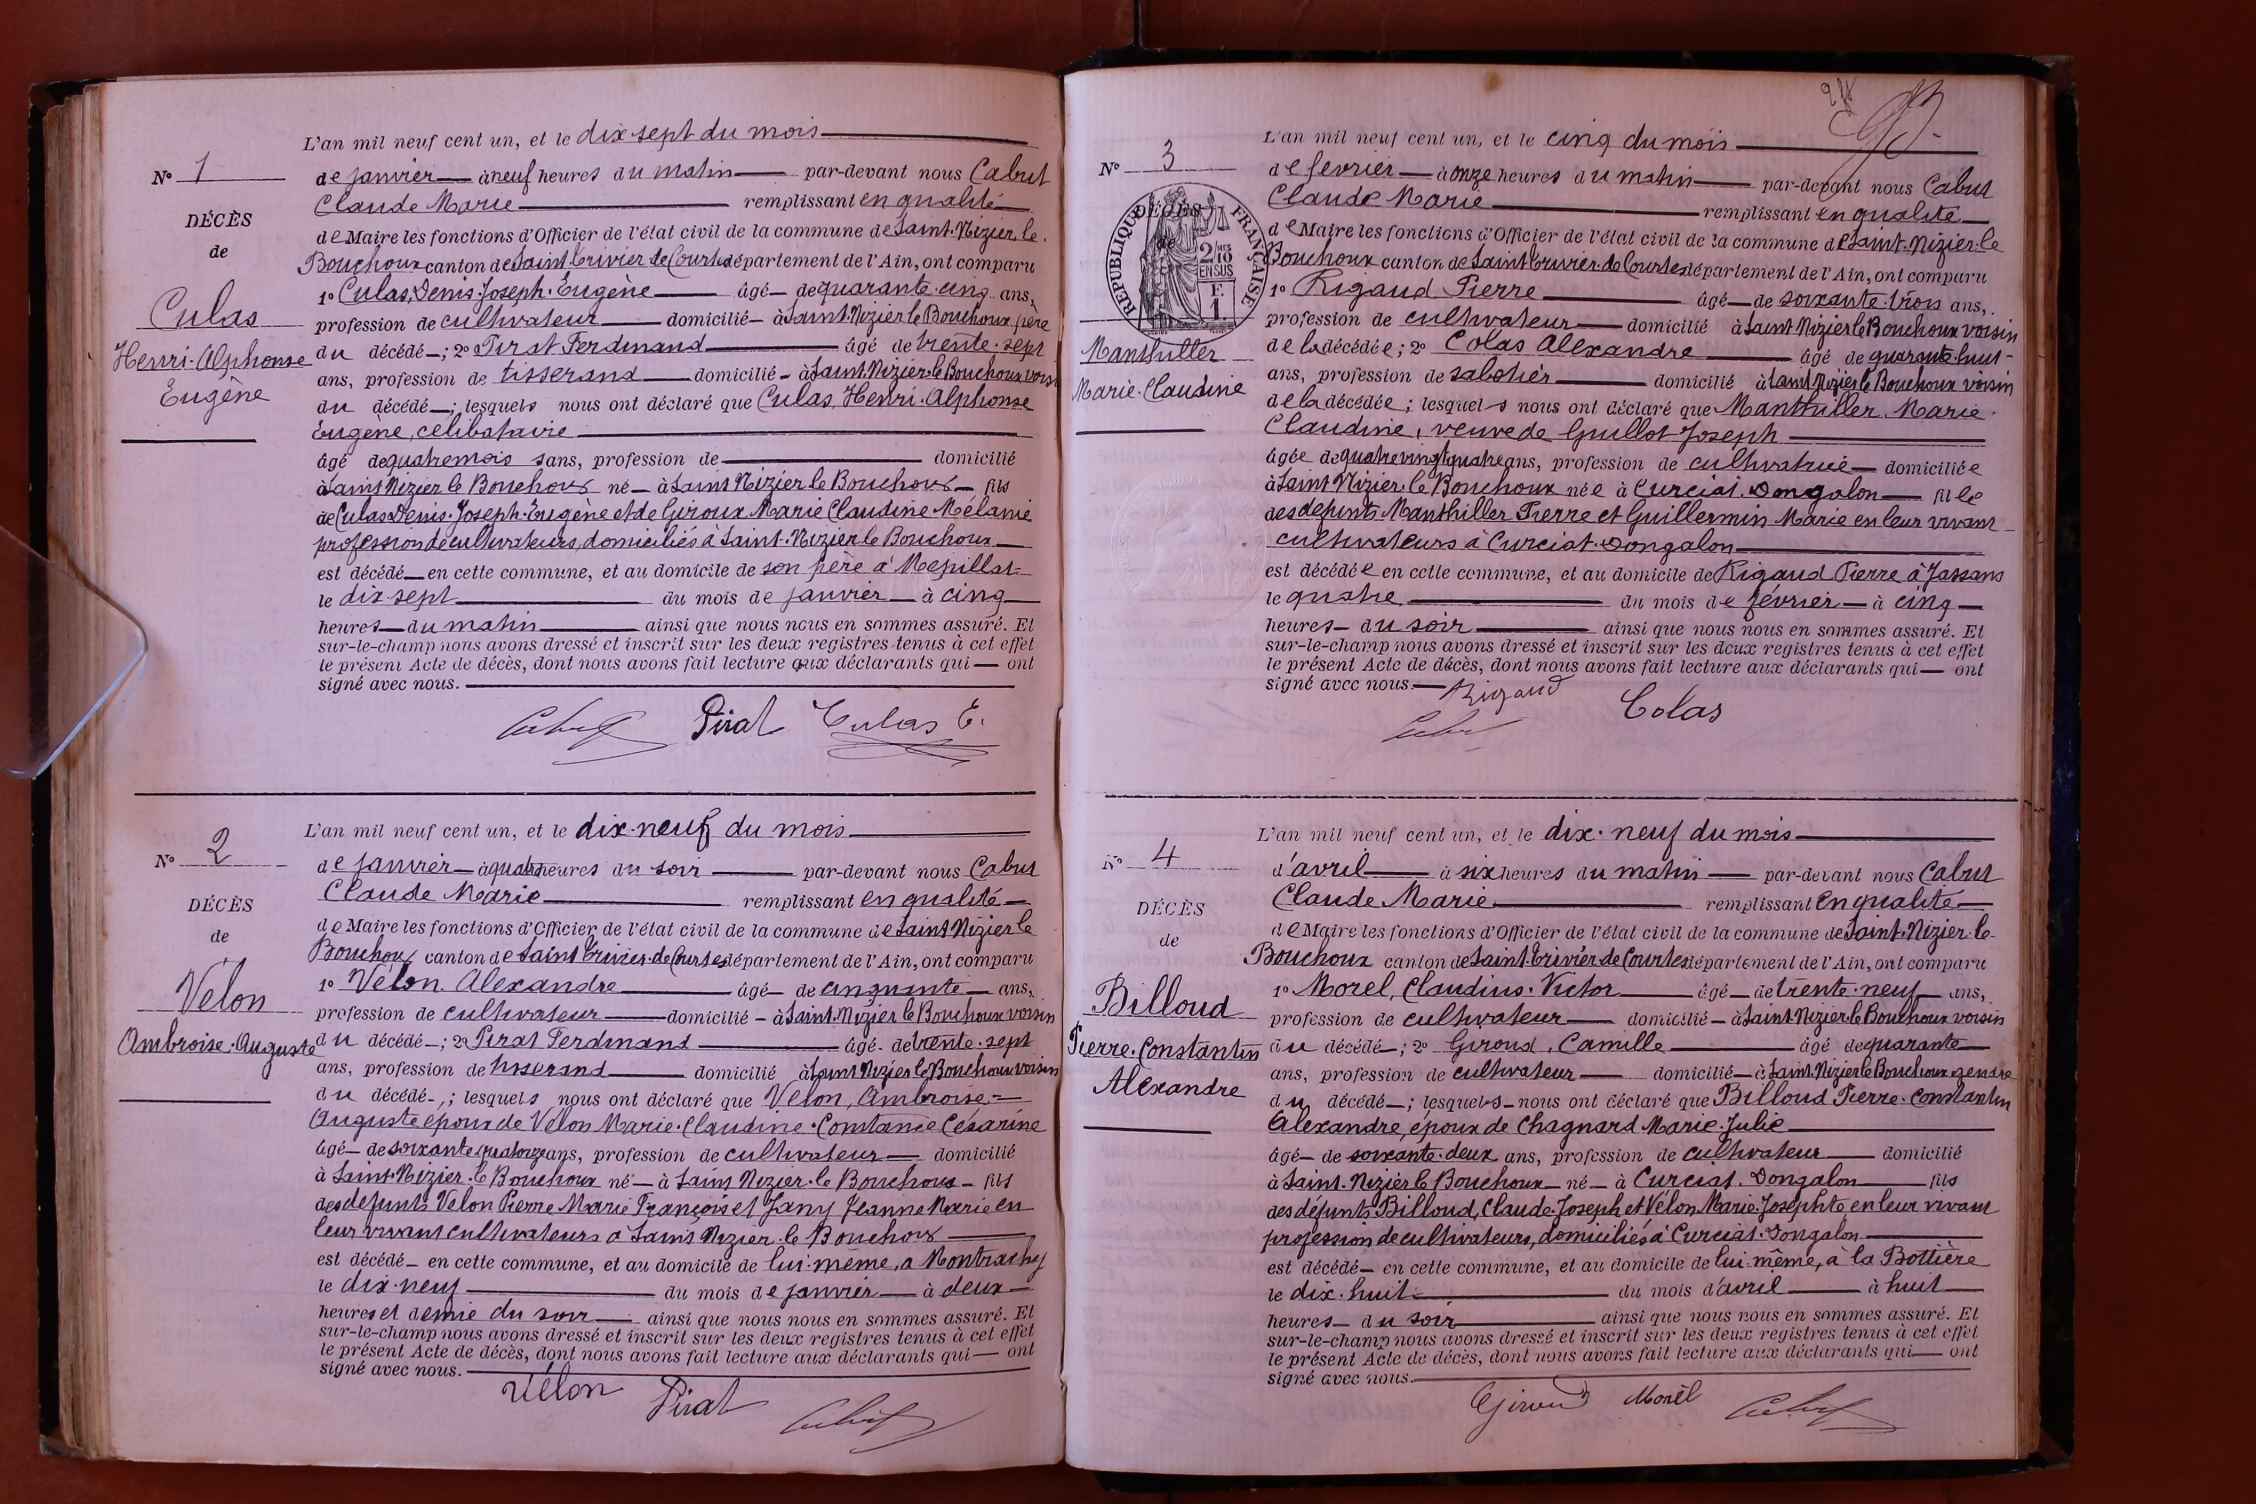 L'an mil neuf cent un, et le dix-sept du mois
N° 1
de janvier à neuf heures du matin par-devant nous Cabut
Claude Marie remplissant en qualité
DÉCÈS
de Maire les fonctions d'Officier de l'état civil de la commune de Saint-Nizier-le
de
Bouchoux canton de Saint Trivier de Courtes département de l'Ain, ont comparu
1° Culas, Denis-Joseph-Eugène âgé de quarante cinq ans,
Culas
profession de cultivateur domicilié à Saint Nizier le Bouchoux père
Henri-Alphonse
du décédé ; 2° Pirat Ferdinand âgé de trente-sept
ans, profession de tisserand domicilié à Saint-Nizier-le Bouchoux voisin
Eugène
du décédé ; lesquels nous ont déclaré que Culas, Henri-Alphonse
Eugène, célibataire
âgé de quatre mois sans, profession de domicilié
à Saint Nizier le Bouchoux né à Saint Nizier le Bouchoux fils
de Culas Denis-Joseph-Eugène et de Giroux Marie Claudine Mélanie
profession de cultivateurs, domiciliés à Saint-Nizier le Bouchoux
est décédé en cette commune, et au domicile de son père à Mépillat
le dix-sept du mois de janvier à cinq
heures du matin ainsi que nous nous en sommes assuré. Et
sur-le-champ nous avons dressé et inscrit sur les deux registres tenus à cet effet
le présent Acte de décès, dont nous avons fait lecture aux déclarants qui ont
signé avec nous.
Cabut Pirat Culas E.
L'an mil neuf cent un, et le dix-neuf du mois
N° 2
de janvier à quatre heures du soir par-devant nous Cabut
Claude Marie remplissant en qualité
DÉCÈS
de Maire les fonctions d'Officier de l'état civil de la commune de Saint Nizier le
de
Bouchoux canton de Saint Trivier-de Courtes département de l'Ain, ont comparu
1° Vélon Alexandre âgé de cinquante ans,
Vélon
profession de cultivateur domicilié à Saint-Nizier le Bouchoux voisin
Ambroise-Auguste
du décédé ; 2° Pirat Ferdinand âgé de trente-sept
ans, profession de tisserand domicilié à Saint Nizier le Bouchoux voisin
du décédé ; lesquels nous ont déclaré que Vélon, Ambroise-
Auguste époux de Vélon Marie-Claudine-Constance Césarine
âgé de soixante quatorze ans, profession de cultivateur domicilié
à Saint-Nizier-le Bouchoux né à Saint Nizier-le Bouchoux fils
des défunts Vélon Pierre Marie François et Jany Jeanne Marie en
leur vivant cultivateurs à Saint Nizier-le Bouchoux
est décédé en cette commune, et au domicile de lui-même, à Montrachy
le dix-neuf du mois de janvier à deux
heures et demie du soir ainsi que nous nous en sommes assuré. Et
sur-le-champ nous avons dressé et inscrit sur les deux registres tenus à cet effet
le présent Acte de décès, dont nous avons fait lecture aux déclarants qui ont
signé avec nous.
Vélon Pirat Cabut
L'an mil neuf cent un, et le cinq du mois
N° 3
de février à onze heures du matin par-devant nous Cabut
Claude Marie remplissant en qualité
DÉCÈS
de
RÉPUBLIQUE FRANÇAISE
2 MES
10
EN SUS
F.
1.
de Maire les fonctions d'Officier de l'état civil de la commune de Saint-Nizier-le
Bouchoux canton de Saint Trivier-de Courtes département de l'Ain, ont comparu
1° Rigaud Pierre âgé de soixante-trois ans,
profession de cultivateur domicilié à Saint Nizier le Bouchoux voisin
Manthiller
de la décédée ; 2° Colas Alexandre âgé de quarante-huit
Marie-Claudine
ans, profession de sabotier domicilié à Saint Nizier le Bouchoux voisin
de la décédée ; lesquels nous ont déclaré que Manthiller, Marie-
Claudine, veuve de Guillot Joseph
âgée de quatre vingt quatre ans, profession de cultivatrice domiciliée
à Saint Nizier-le Bouchoux née à Curciat-Dongalon fille
des défunts Manthiller Pierre et Guillermin Marie en leur vivant
cultivateurs à Curciat-Dongalon
est décédée en cette commune, et au domicile de Rigaud Pierre à Jassans
le quatre du mois de février à cinq
heures du soir ainsi que nous nous en sommes assuré. Et
sur-le-champ nous avons dressé et inscrit sur les deux registres tenus à cet effet
le présent Acte de décès, dont nous avons fait lecture aux déclarants qui ont
signé avec nous. Rigaud
Cabut Colas
L'an mil neuf cent un, et le dix-neuf du mois
N° 4
d'avril à six heures du matin par-devant nous Cabut
Claude Marie remplissant en qualité
DÉCÈS
de Maire les fonctions d'Officier de l'état civil de la commune de Saint-Nizier-le-
de
Bouchoux canton de Saint-Trivier-de Courtes département de l'Ain, ont comparu
1° Morel, Claudius-Victor âgé de trente-neuf ans,
Billoud
profession de cultivateur domicilié à Saint Nizier-le Bouchoux voisin
Pierre-Constantin
du décédé ; 2° Giroud, Camille âgé de quarante
ans, profession de cultivateur domicilié à Saint-Nizier le Bouchoux gendre
Alexandre
du décédé ; lesquels nous ont déclaré que Billoud Pierre-Constantin
Alexandre, époux de Chagnard Marie-Julie
âgé de soixante-deux ans, profession de cultivateur domicilié
à Saint-Nizier le Bouchoux né à Curciat-Dongalon fils
des défunts Billoud, Claude-Joseph et Vélon Marie-Josephte en leur vivant
profession de cultivateurs, domiciliés à Curciat-Dongalon
est décédé en cette commune, et au domicile de lui-même, à la Bottière
le dix-huit du mois d'avril à huit
heures du soir ainsi que nous nous en sommes assuré. Et
sur-le-champ nous avons dressé et inscrit sur les deux registres tenus à cet effet
le présent Acte de décès, dont nous avons fait lecture aux déclarants qui ont
signé avec nous.
Giroud Morel Cabut